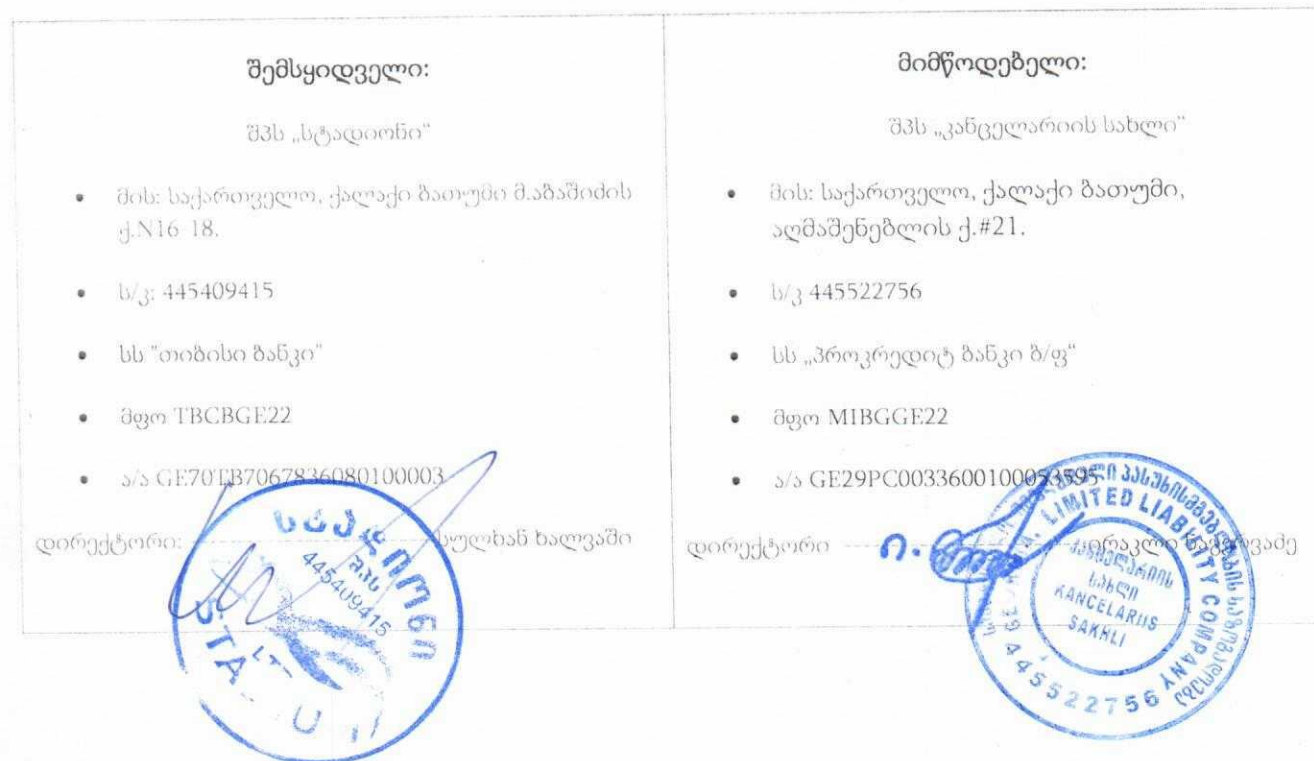 შემსყიდველი:
შპს „სტადიონი“
• მის: საქართველო, ქალაქი ბათუმი მ.აბაშიძის
ქ.N16-18.
• ს/კ: 445409415
• სს "თიბისი ბანკი"
• მფო TBCBGE22
• ა/ა GE70TB7067836080100003
დირექტორი: სულხან ხალვაში
სტადიონი
შპს
445409415
მიმწოდებელი:
შპს „კანცელარიის სახლი“
• მის: საქართველო, ქალაქი ბათუმი,
აღმაშენებლის ქ.#21.
• ს/კ 445522756
• სს „პროკრედიტ ბანკი ბ/ფ“
• მფო MIBGGE22
• ა/ა GE29PC0033600100053595
დირექტორი ირაკლი
პასუხისმგებლობის საზოგადოება
LIMITED LIABILITY COMPANY
კანცელარიის
სახლი
KANCELARIIS
SAKHLI
445522756